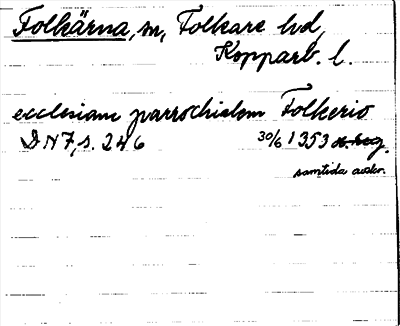 Folkärna, sn, Folkare hd,
Kopparb. l.
ecclesiam parrochialem Folkerio
DN 7, s. 246 30/6 1353
samtida avskr.